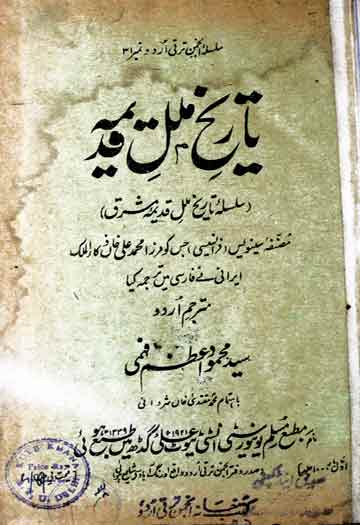 سلسلۂ انجمن ترقی اُردو نمبر ۳۱
تاریخِ مللِ قدیمہ
(سلسلۂ تاریخ ملل قدیمہ مشرق)
مصنفہ سینوبس (فرانسیسی) جس کو مرزا محمد علی خاں ذکاء الملک
ایرانی نے فارسی میں ترجمہ کیا
مترجم اُردو
سید محمود اعظم فہمی
باہتمام محمد مقتدی خاں شروانی
مطبع مسلم یونیورسٹی انسٹی ٹیوٹ علی گڑھ میں طبع ہوئی
۱۳۳۹ھ ۱۹۲۱ء
صدر دفتر انجمن ترقی اُردو
کتبخانہ انجمن ترقی اردو